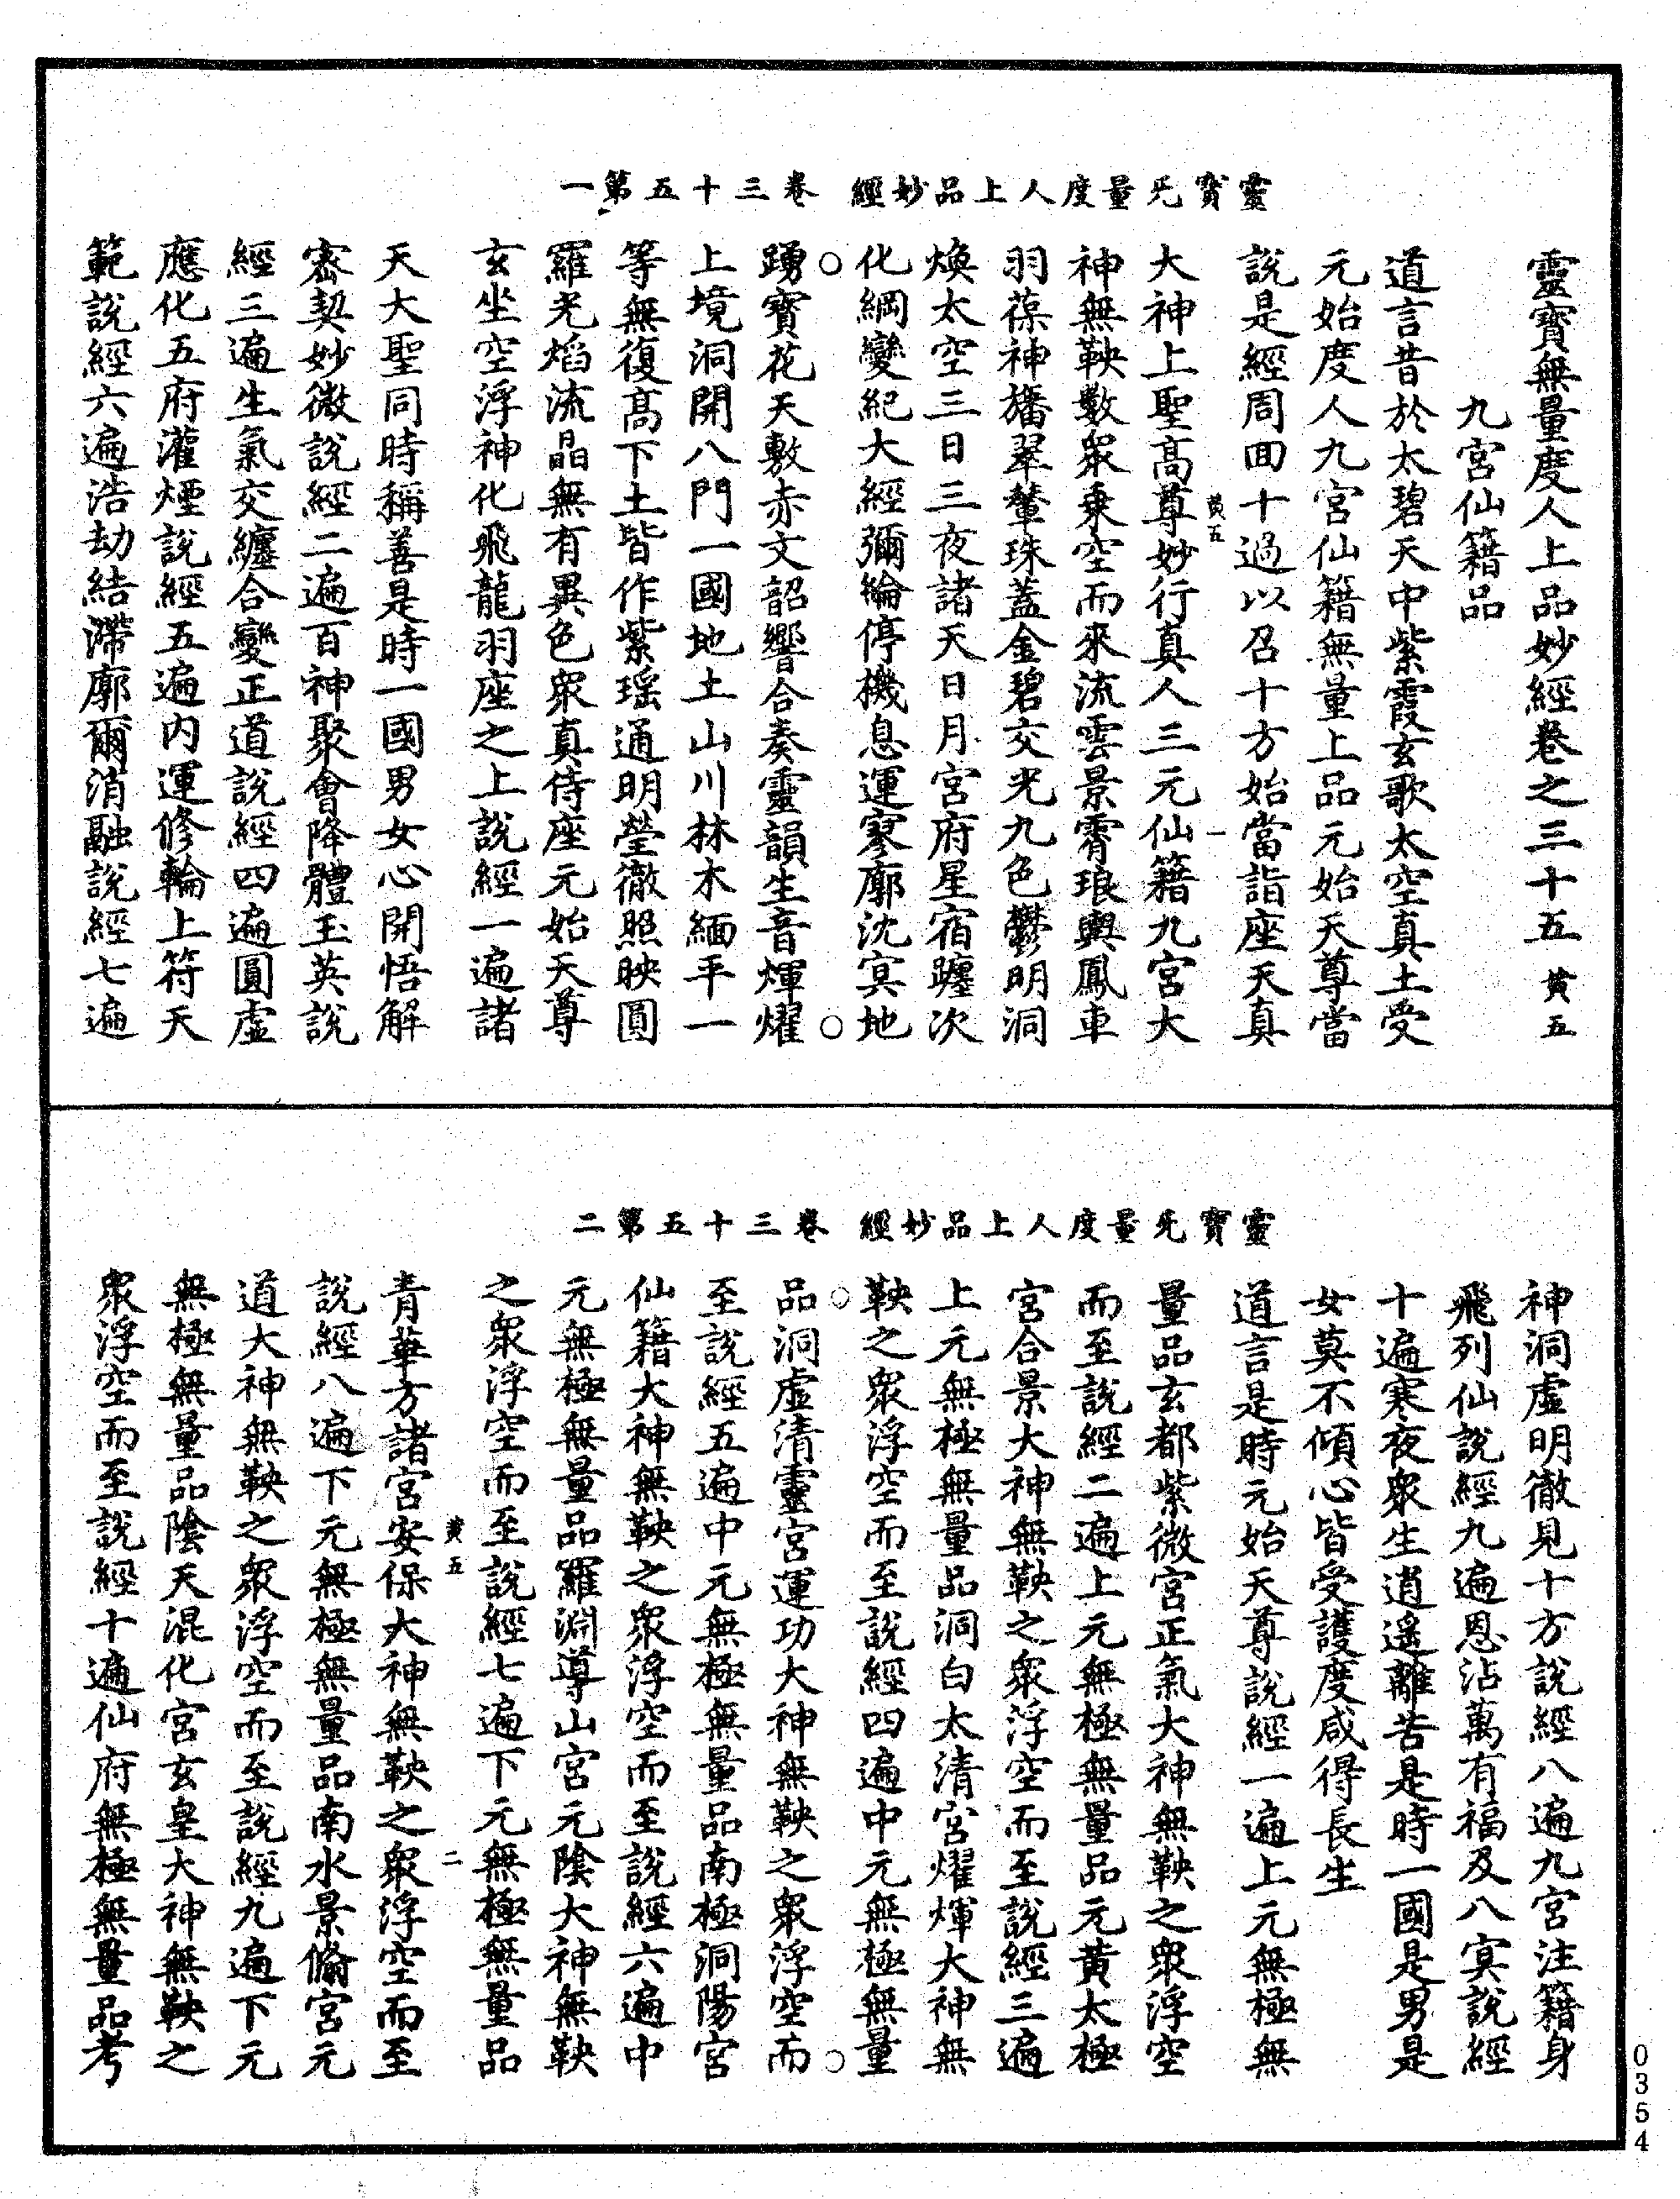 靈寶无量度人上品妙經　卷三十五第一
靈寶無量度人上品妙經卷之三十五　黃五
九宮仙籍品
道言昔於太碧天中紫霞玄歌太空真土受
元始度人九宮仙籍無量上品元始天尊當
說是經周回十過以召十方始當詣座天真
黃五　一
大神上聖高尊妙行真人三元仙籍九宮大
神無鞅數眾乘空而來流雲景霄琅輿鳳車
羽葆神旛翠輦珠蓋金碧交光九色鬱明洞
煥太空三日三夜諸天日月宮府星宿躔次
化綱變紀大經彌綸停機息運寥廓沈冥地
踴寶花天敷赤文韶響合奏靈韻生音煇燿
上境洞開八門一國地土山川林木緬平一
等無復高下土皆作紫瑶通明瑩徹照映圓
羅光焰流晶無有異色眾真侍座元始天尊
玄坐空浮神化飛龍羽座之上說經一遍諸
天大聖同時稱善是時一國男女心開悟解
密契妙微說經二遍百神聚會降體玉英說
經三遍生氣交纏合變正道說經四遍圓虛
應化五府灌煙說經五遍內運修輪上符天
範說經六遍浩劫結滯廓爾消融說經七遍
靈寶无量度人上品妙經　卷三十五第二
神洞虛明徹見十方說經八遍九宮注籍身
飛列仙說經九遍恩沾萬有福及八冥說經
十遍寒夜眾生逍遥離苦是時一國是男是
女莫不傾心皆受護度咸得長生
道言是時元始天尊說經一遍上元無極無
量品玄都紫微宮正氣大神無鞅之眾浮空
而至說經二遍上元無極無量品元黃太極
宮合景大神無鞅之眾浮空而至說經三遍
上元無極無量品洞白太清宮燿煇大神無
鞅之眾浮空而至說經四遍中元無極無量
品洞虛清靈宮運功大神無鞅之眾浮空而
至說經五遍中元無極無量品南極洞陽宮
仙籍大神無鞅之眾浮空而至說經六遍中
元無極無量品羅淵導山宮元陰大神無鞅
之眾浮空而至說經七遍下元無極無量品
黃五　二
青華方諸宮安保大神無鞅之眾浮空而至
說經八遍下元無極無量品南水景脩宮元
道大神無鞅之眾浮空而至說經九遍下元
無極無量品陰天混化宮玄皇大神無鞅之
眾浮空而至說經十遍仙府無極無量品考
0354